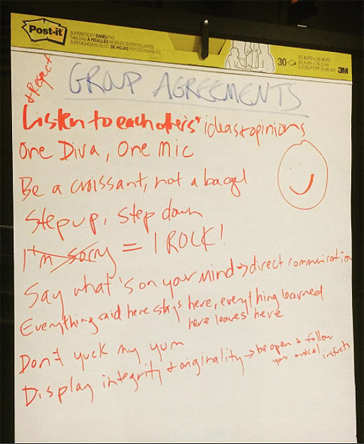 Post-it
SUPERSTICKY
30
3M
GROUP AGREEMENTS
+Respect
Listen to eachothers' ideas+opinions
One Diva, One Mic
Be a croissant, not a bagel
Step up, Step down
I'm sorry = I ROCK!
Say what's on your mind→direct communication
Everything said here stays here, everything learned
here leaves here
Don't yuck my yum
Display integrity + originality → be open & follow
your musical instincts